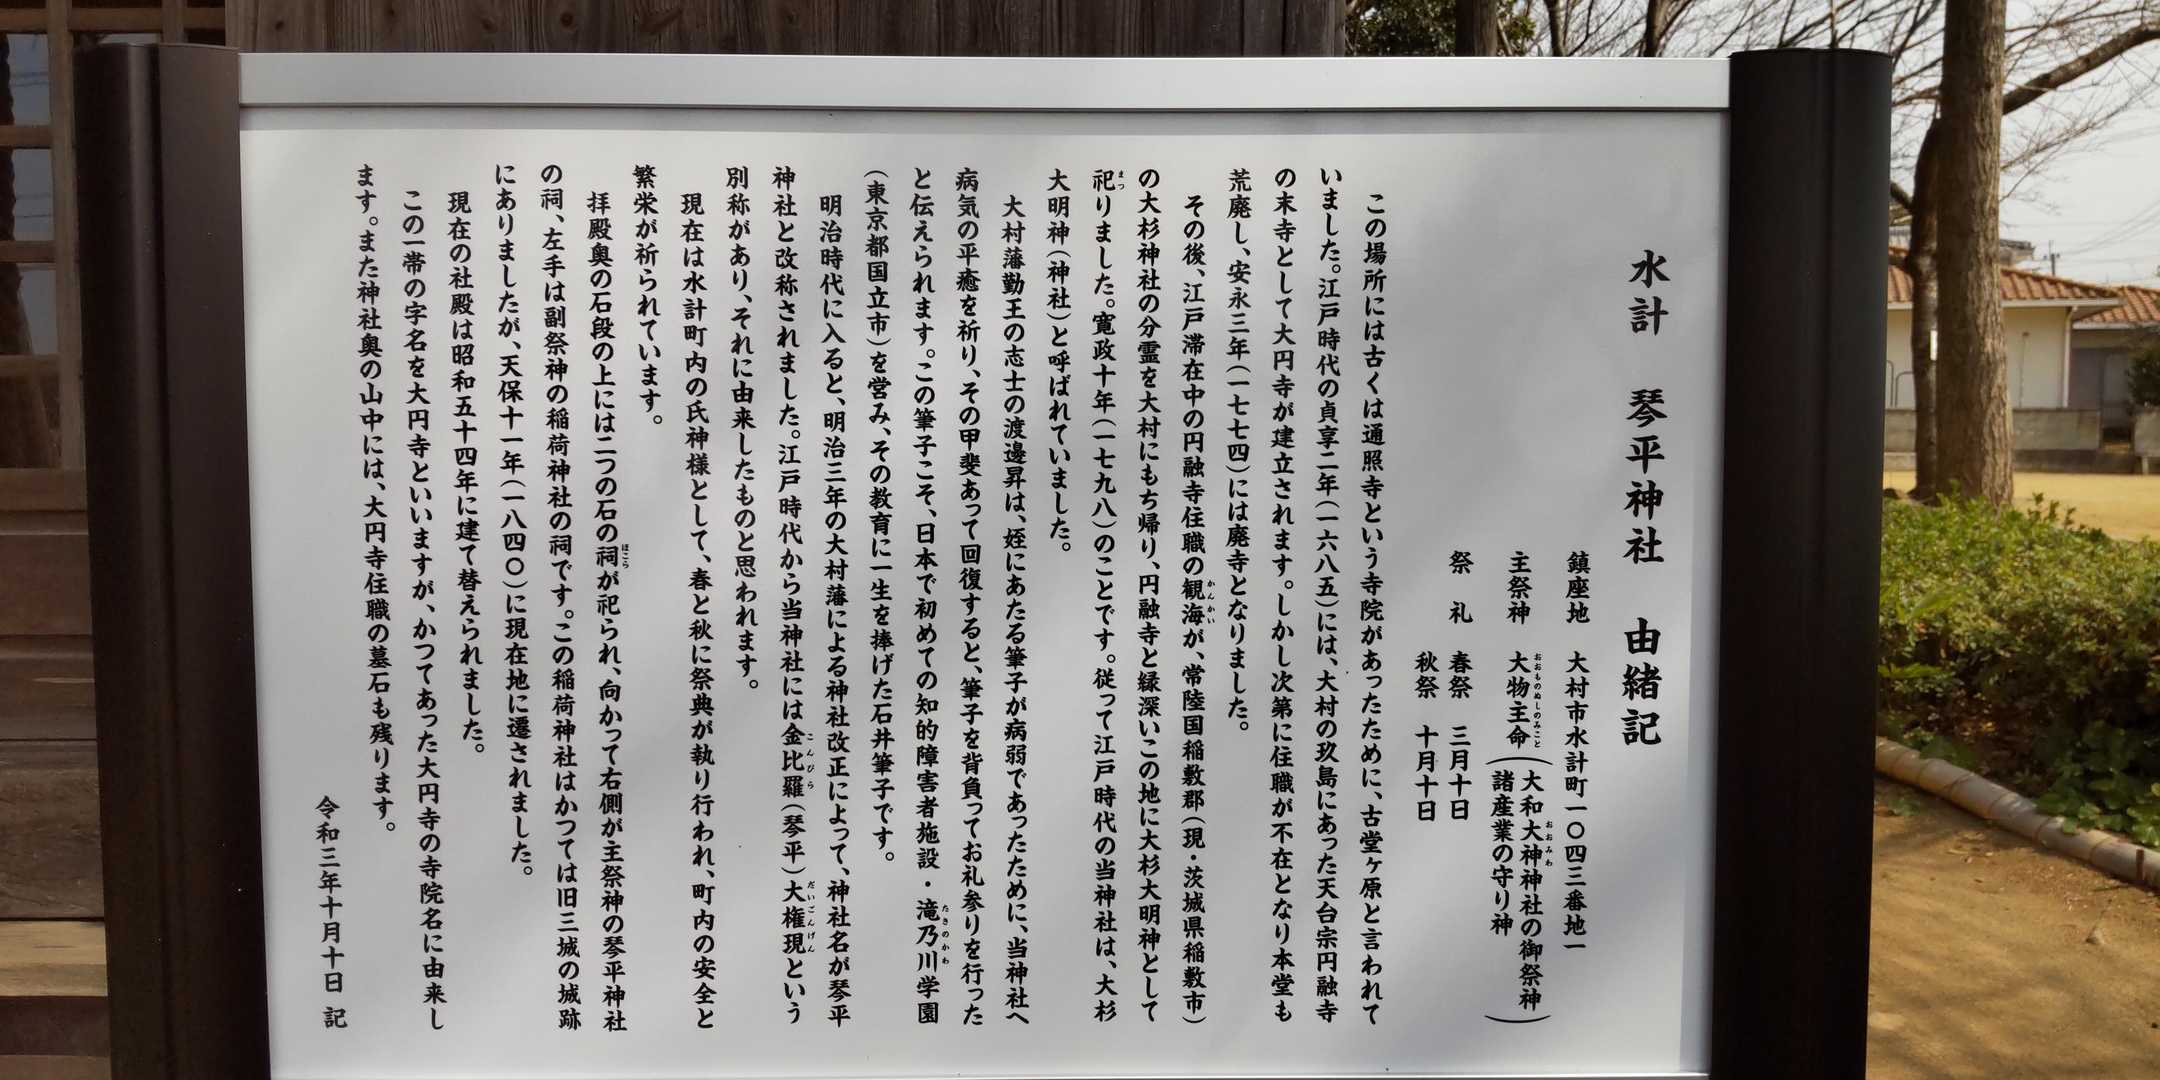 水計　琴平神社　由緒記
鎮座地　大村市水計町一〇四三番地一
主祭神　大物主命（大和大神神社の御祭神
諸産業の守り神）
祭　礼　春祭　三月十日
秋祭　十月十日
この場所には古くは通照寺という寺院があったために、古堂ヶ原と言われて
いました。江戸時代の貞享二年（一六八五）には、大村の玖島にあった天台宗円融寺
の末寺として大円寺が建立されます。しかし次第に住職が不在となり本堂も
荒廃し、安永三年（一七七四）には廃寺となりました。
その後、江戸滞在中の円融寺住職の観海が、常陸国稲敷郡（現・茨城県稲敷市）
の大杉神社の分霊を大村にもち帰り、円融寺と縁深いこの地に大杉大明神として
祀りました。寛政十年（一七九八）のことです。従って江戸時代の当神社は、大杉
大明神（神社）と呼ばれていました。
大村藩勤王の志士の渡邊昇は、姪にあたる筆子が病弱であったために、当神社へ
病気の平癒を祈り、その甲斐あって回復すると、筆子を背負ってお礼参りを行った
と伝えられます。この筆子こそ、日本で初めての知的障害者施設・滝乃川学園
（東京都国立市）を営み、その教育に一生を捧げた石井筆子です。
明治時代に入ると、明治三年の大村藩による神社改正によって、神社名が琴平
神社と改称されました。江戸時代から当神社には金比羅（琴平）大権現という
別称があり、それに由来したものと思われます。
現在は水計町内の氏神様として、春と秋に祭典が執り行われ、町内の安全と
繁栄が祈られています。
拝殿奥の石段の上には二つの石の祠が祀られ、向かって右側が主祭神の琴平神社
の祠、左手は副祭神の稲荷神社の祠です。この稲荷神社はかつては旧三城の城跡
にありましたが、天保十一年（一八四〇）に現在地に遷されました。
現在の社殿は昭和五十四年に建て替えられました。
この一帯の字名を大円寺といいますが、かつてあった大円寺の寺院名に由来し
ます。また神社奥の山中には、大円寺住職の墓石も残ります。
令和三年十月十日　記